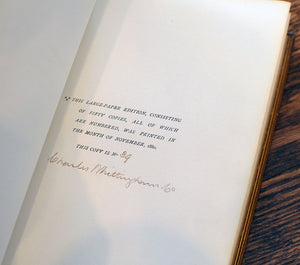 THIS LARGE-PAPER EDITION, CONSISTING
OF FIFTY COPIES, ALL OF WHICH
ARE NUMBERED, WAS PRINTED IN
THE MONTH OF NOVEMBER, 1880.
THIS COPY IS No 29
Charles Whittingham & Co